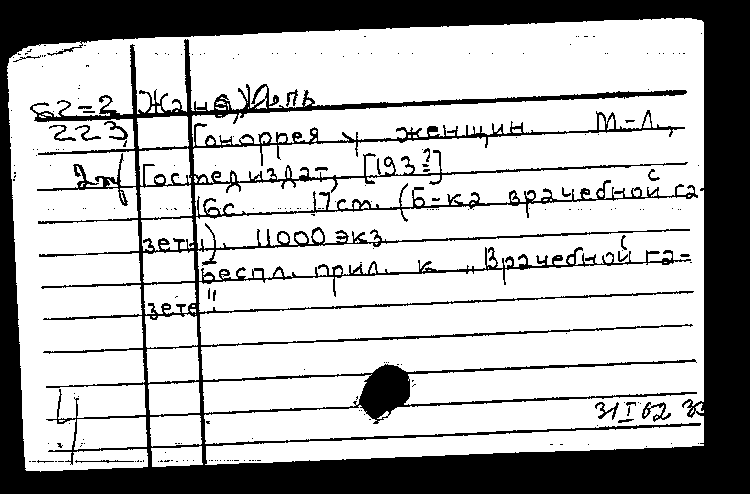 62-2 Жанэ, Жель
223 Гоноррея у женщин. М.-Л.,
Госмедиздат, [193?]
16с. 17см. (Б-ка врачебной га-
зеты). 11000 экз.
Беспл. прил. к „Врачебной га-
зете"
4
31 I 62